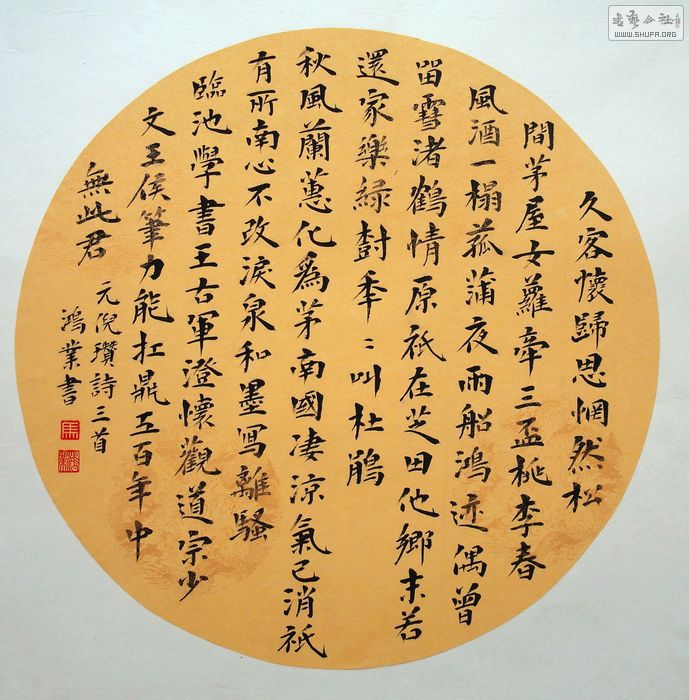 久客懷歸思惘然松
間茅屋女蘿牽三盃桃李春
風酒一榻菰蒲夜雨船鴻迹偶曾
留雪渚鶴情原祇在芝田他鄉未若
還家樂綠樹秊〻叫杜鵑
秋風蘭蕙化爲茅南國凄涼氣已消祇
有所南心不改淚泉和墨寫離騷
臨池學書王右軍澄懷觀道宗少
文王侯筆力能扛鼎五百年中
無此君
元倪瓚詩三首
鴻業書
馬
書藝公社
WWW.SHUFA.ORG